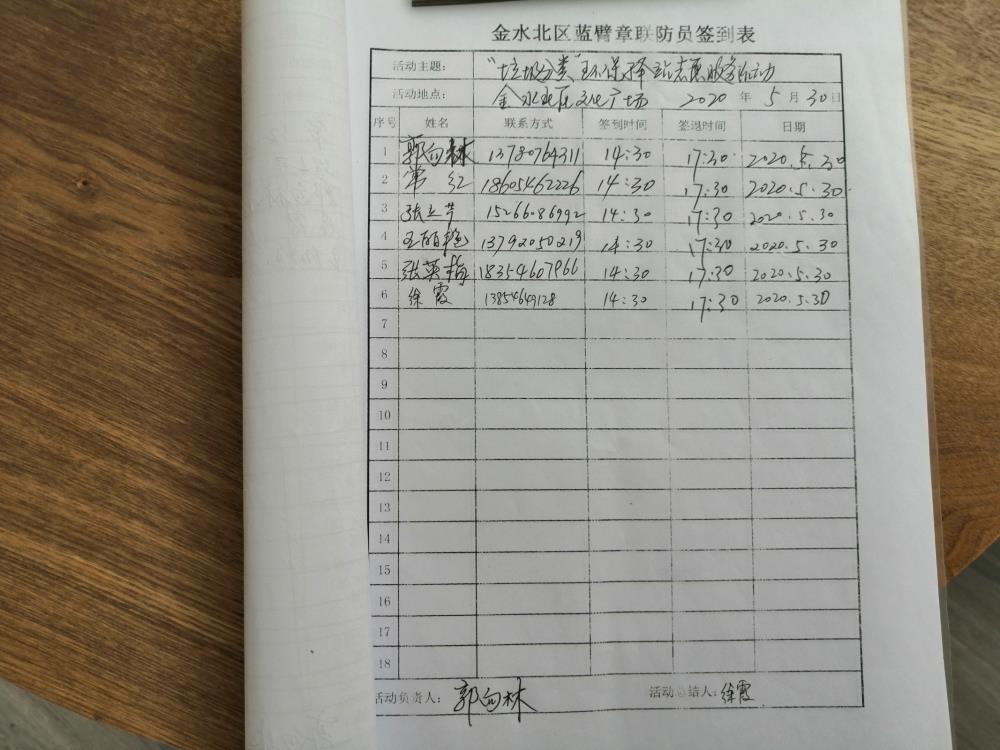 金水北区蓝臂章联防员签到表
活动主题： "垃圾分类"环保 志愿服务活动
活动地点： 金水北区文化广场 2020 年 5 月 30 日
序号 姓名 联系方式 签到时间 签退时间 日期
1 郭向林 13780764311 14:30 17:30 2020.5.30
2 常红 18605462226 14:30 17:30 2020.5.30
3 张立 15266086992 14:30 17:30 2020.5.30
4 王丽艳 13792050219 14:30 17:30 2020.5.30
5 张英梅 18354607966 14:30 17:30 2020.5.30
6 徐霞 13854649128 14:30 17:30 2020.5.30
7
8
9
10
11
12
13
14
15
16
17
18
活动负责人： 郭向林 活动 结人： 徐霞